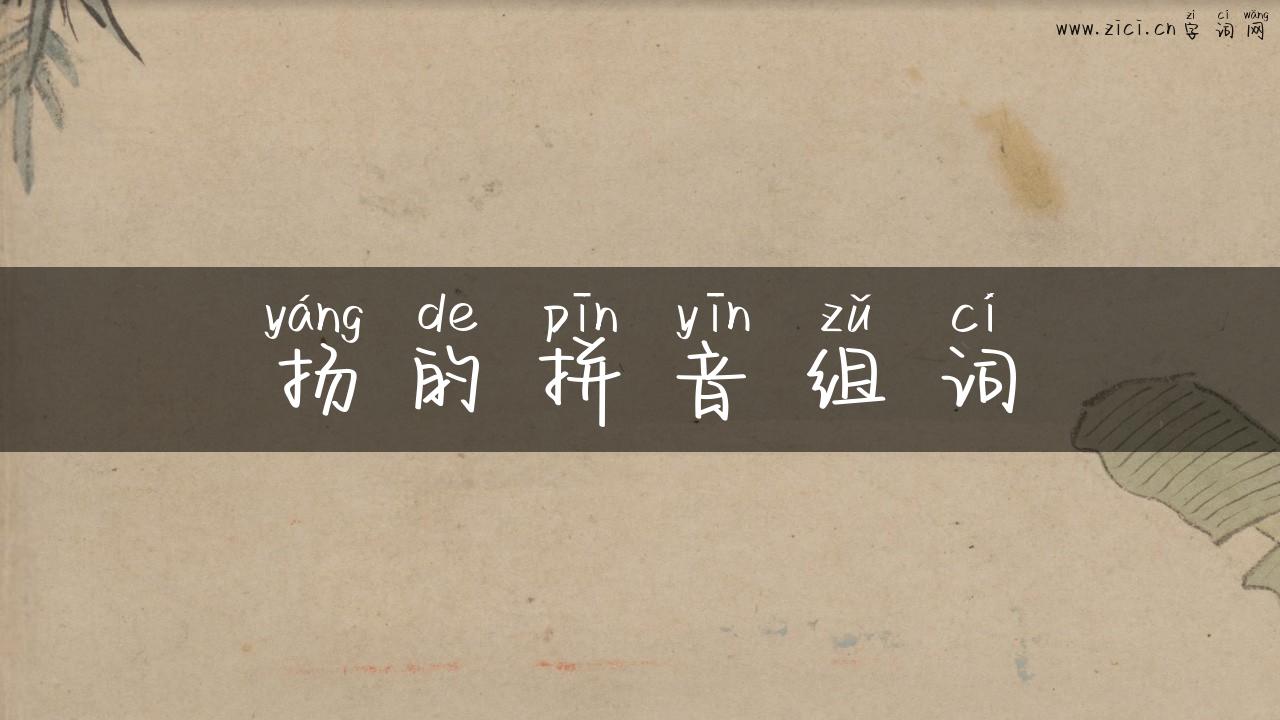 zì cí wǎng
www.zici.cn 字词网
yáng de pīn yīn zǔ cí
扬的拼音组词